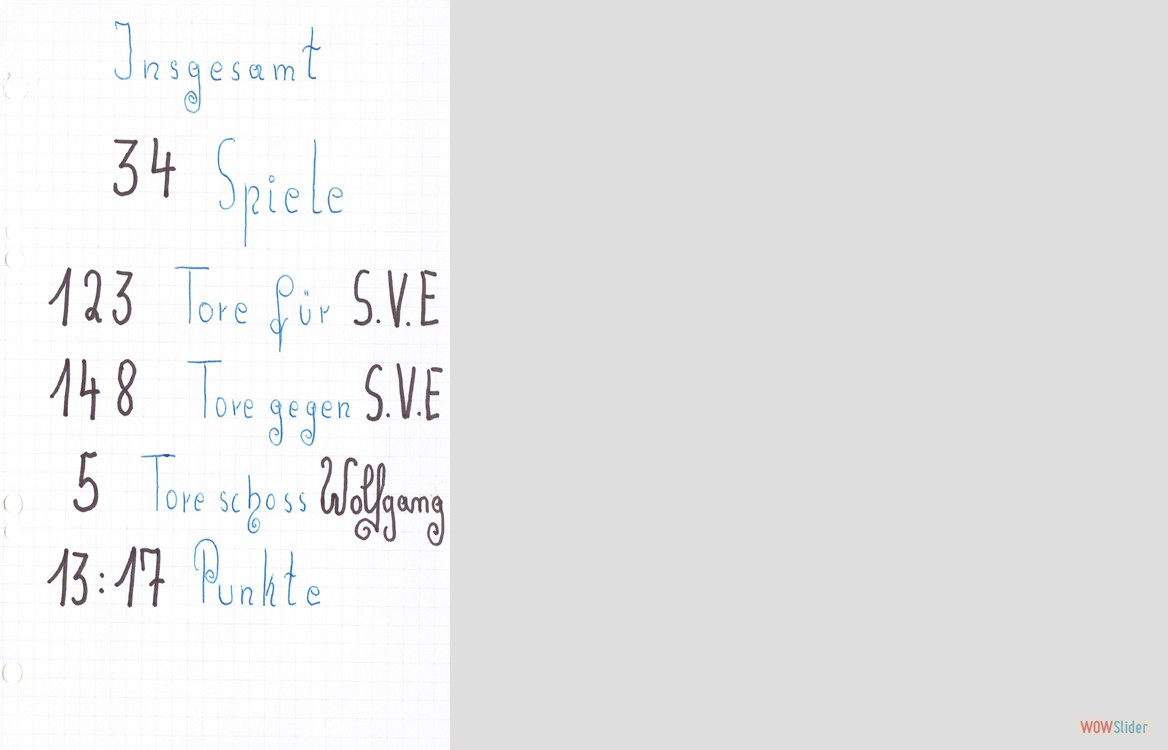 Insgesamt
34 Spiele
123 Tore für S.V.E
148 Tore gegen S.V.E
5 Tore schoss Wolfgang
13:17 Punkte
WOWSlider